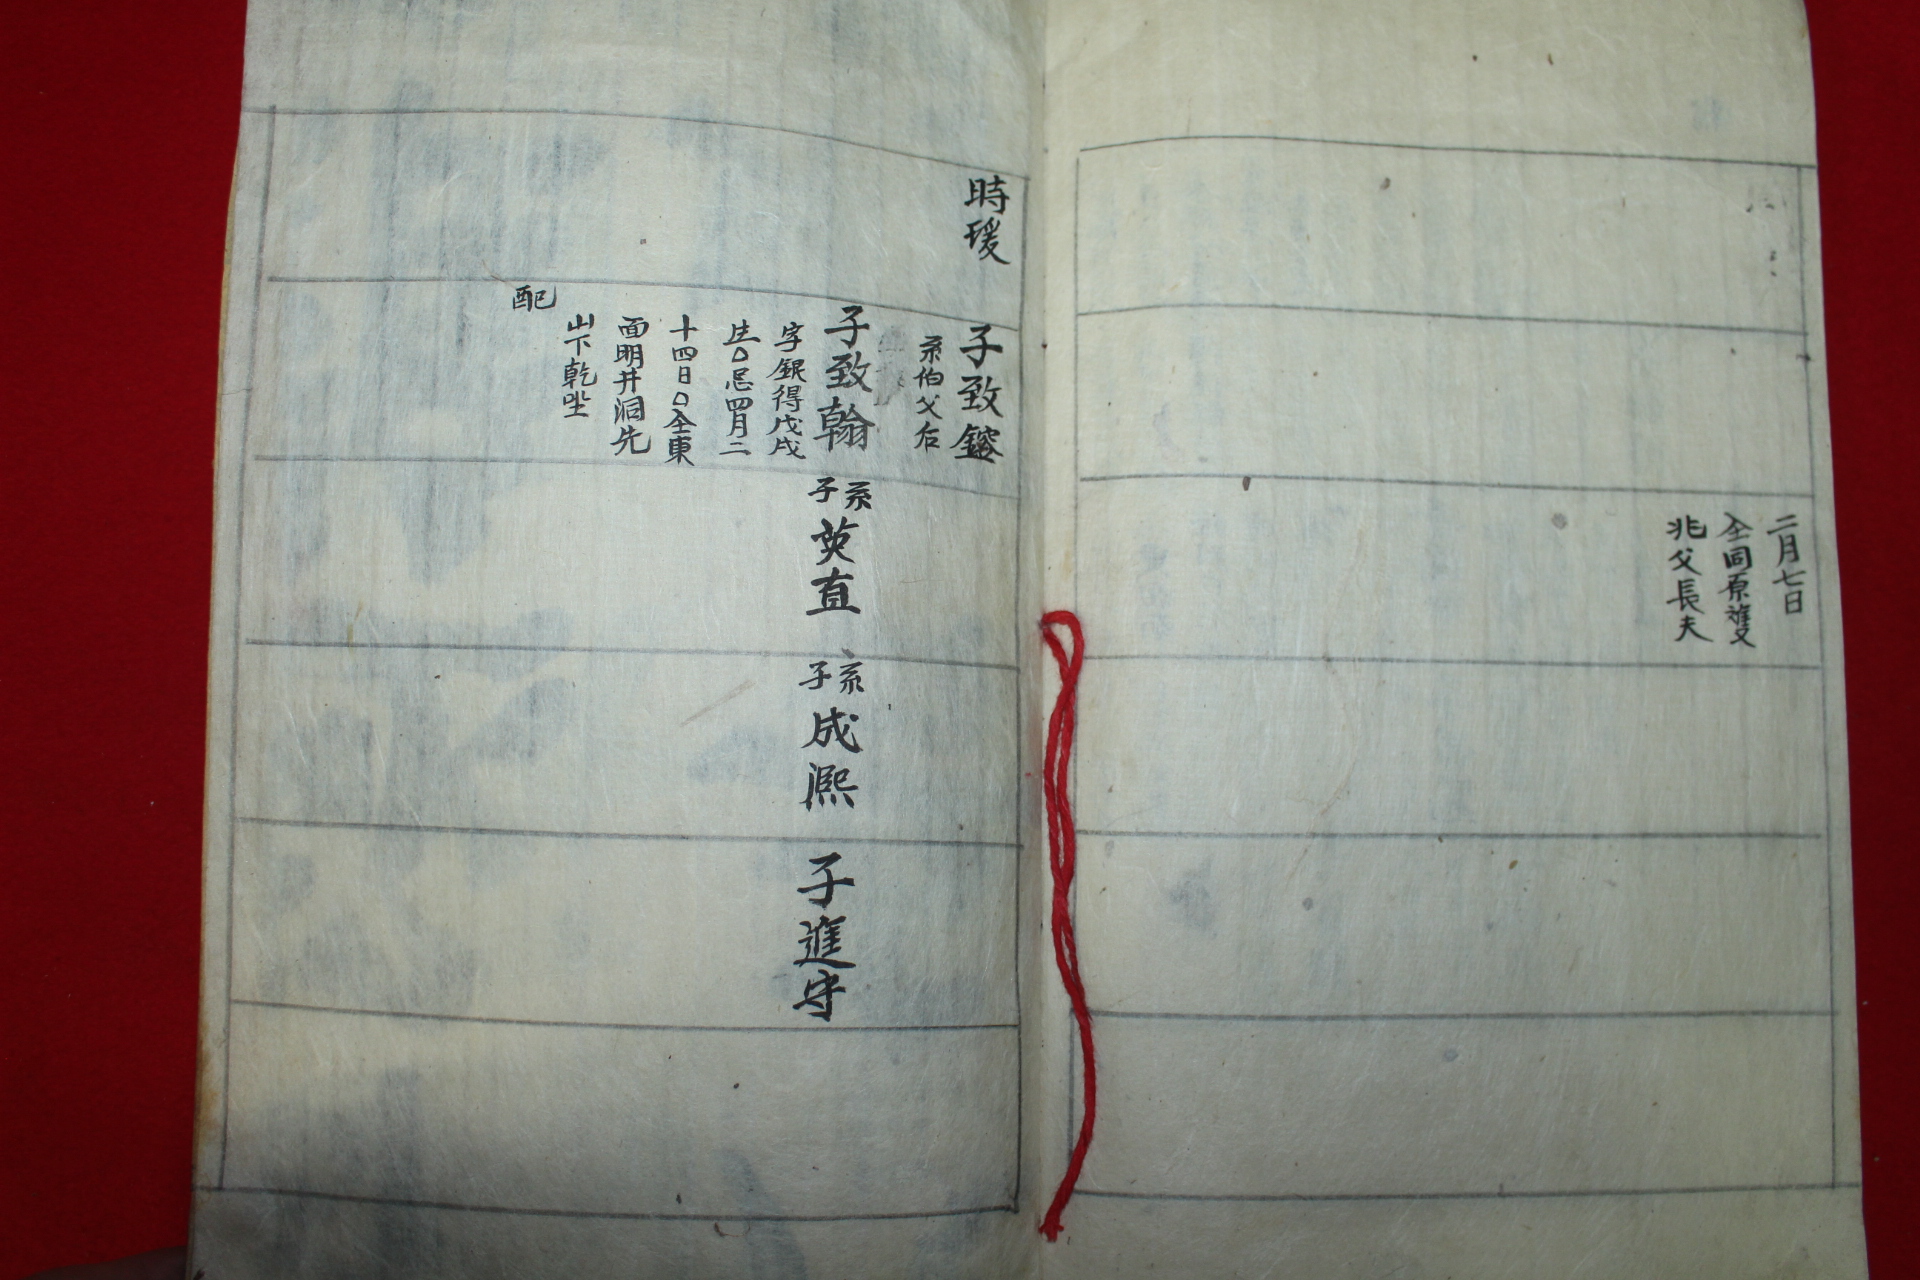 二月七日
仝同原雙
兆父長夫
時瑗
子致鎔
系伯父后
子致翰
字銀得戊戌
生○忌四月二
十四日○仝東
面明井洞先
山下乾坐
配
系子英直
系子成熙
子進守